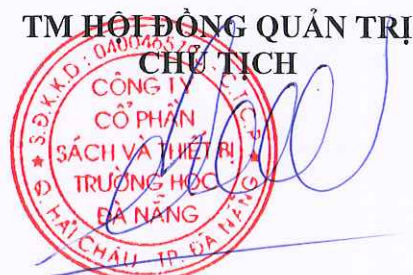 TM HỘI ĐỒNG QUẢN TRỊ
CHỦ TỊCH
S.Đ.K.K.D: C.T.C.P
CÔNG TY
CỔ PHẦN
SÁCH VÀ THIẾT BỊ
TRƯỜNG HỌC
ĐÀ NẴNG
Q. HẢI CHÂU TP. ĐÀ NẴNG